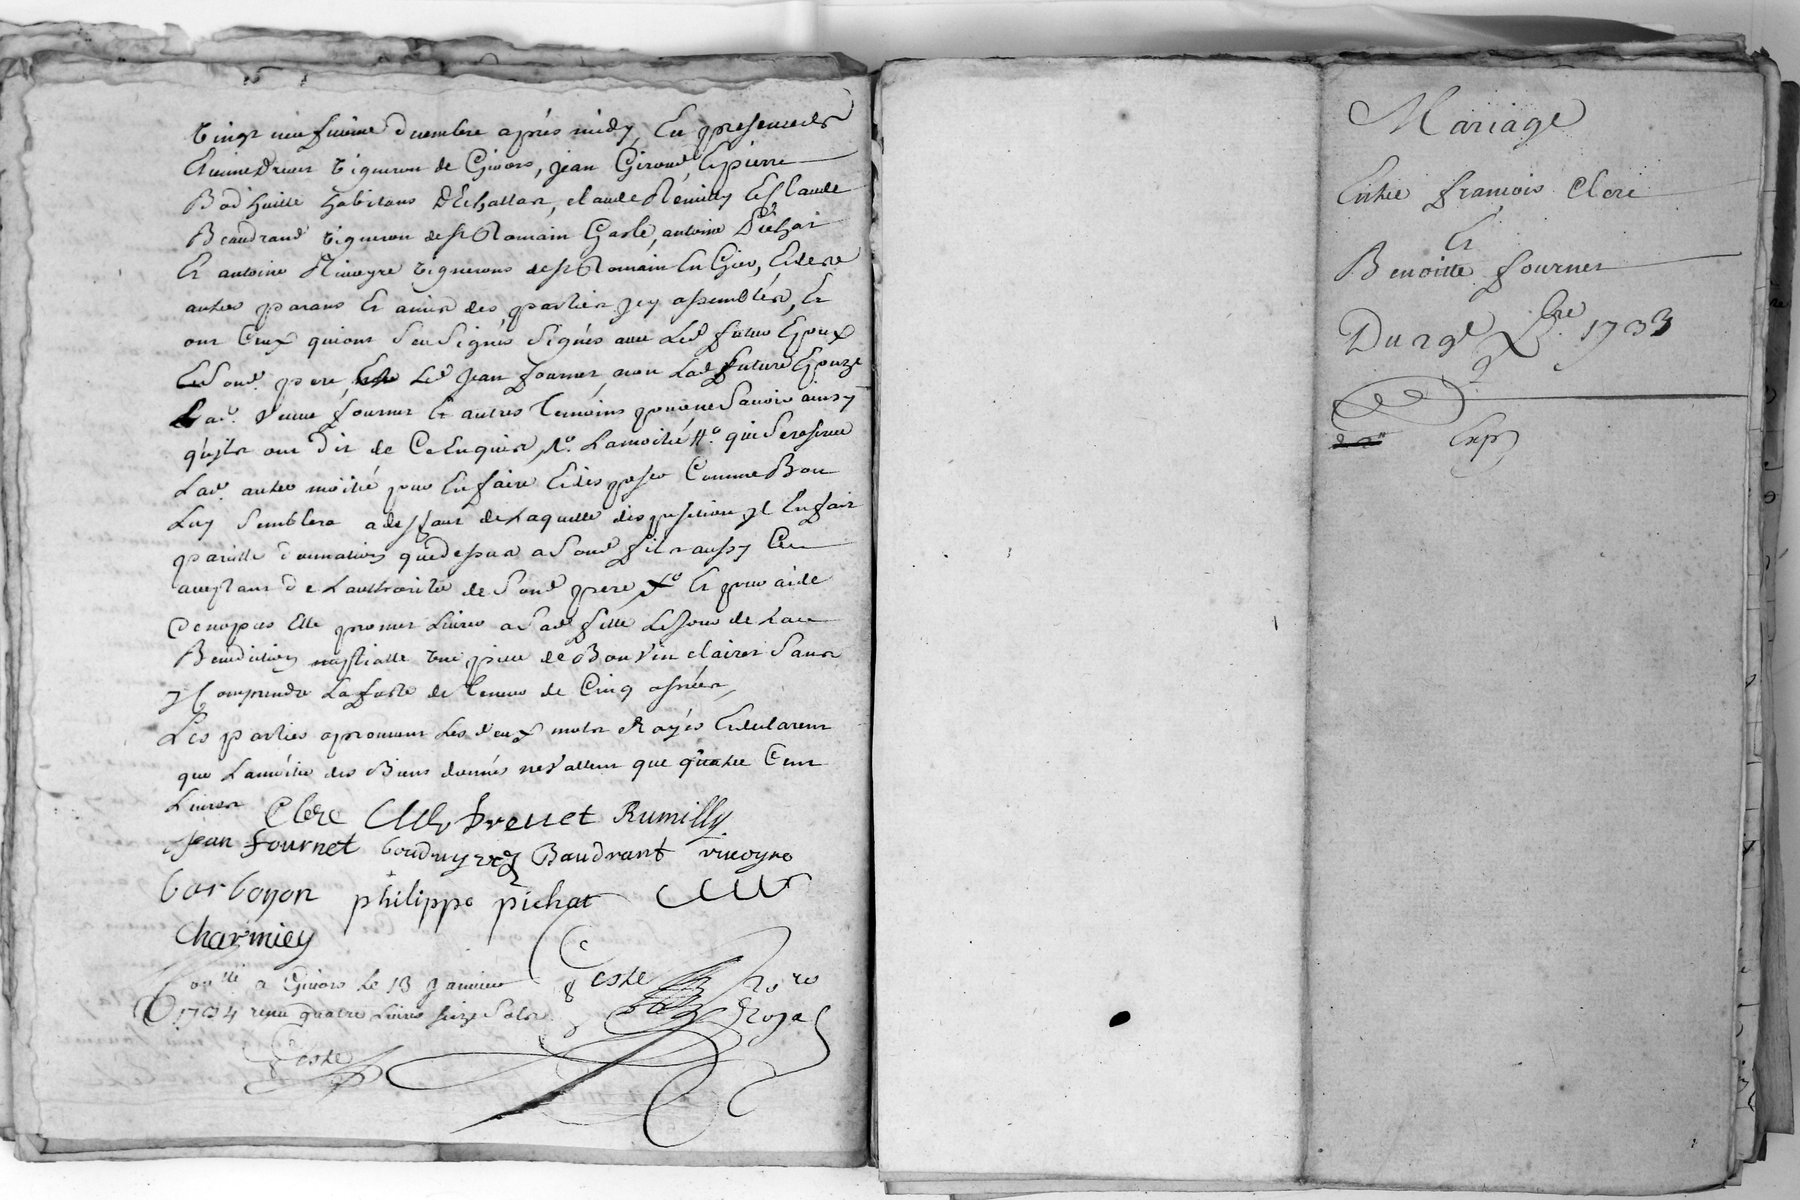 vingt neufvieme decembre après midy, En presence de
Etienne Drevet vigneron de Givors, jean Giroud, Et pierre
habitans D'Echallas, claude Remilly Et Claude
Beaudrand vigneron de st Romain antoine Pichat
Et antoine Rivoyre vignerons de st Romain En Gier, Et de
autres parans Et amis des parties jcy assemblés, Et
ont Ceux qui ont Sceu Signer Signés avec Led futur Epoux
Et Sond. pere, Led jean fournet, non Lad future Epouze
Lad. veuve fournet Et autres temoins pour ne Savoir ainsy
qu'ils ont dit de Ce Enquis, La moitié qui Se reserve
Lad. autre moitié pour En faire Et disposer Comme Bon
Luy Semblera a deffaut de Laquelle disposition jl En fait
pareille donnation que dessus a Sond fils aussy
acceptant de L'authorité de Sond pere Et pour aide
de nopces Elle promet Livrer a Sad fille Le jour de La
Benediction nuptialle une piece de Bon vin clairet Sans
y Comprendre La futte de teneur de Cinq asnées,
Les parties aprouvent Les deux mots Rayés Et declarent
que La moitié des Biens donnés ne vallent que quatre Cent
Livres Clere Drevet Rumilly
jean fournet Baudrant rivoyre
barboyon philippe pichat
Charmiey
Coste
a Givors Le 13 Janvier
1734 reçu quatre Livres seize Sols
Royal
Coste
Mariage
Entre françois Clere
Et
Benoitte fournet
Du 29e Xbre 1733
Exp